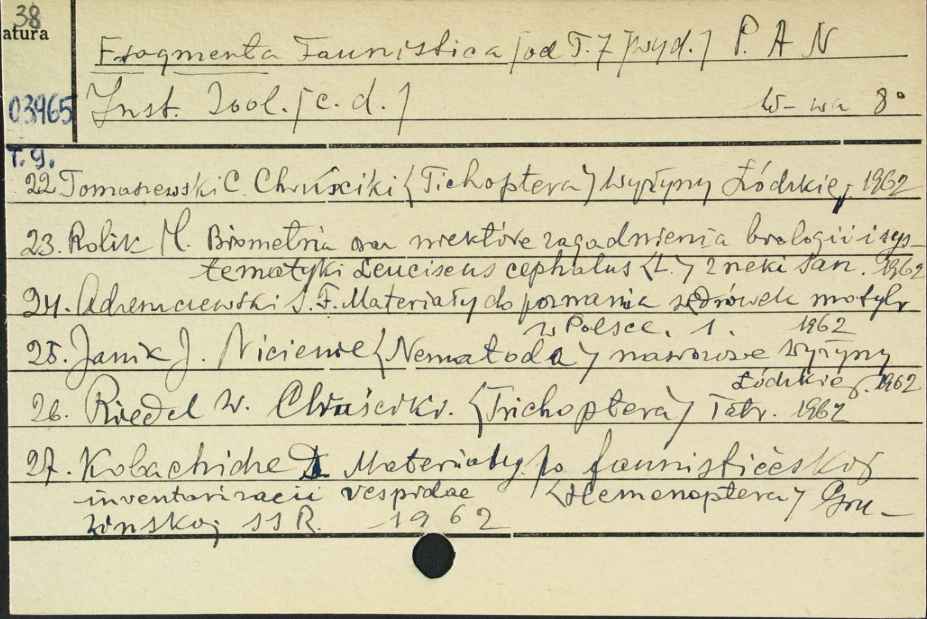 38
atura
Fragmenta Faunistica [od T. 7 [wyd.] P. A N
03965
Inst. Zool. [c. d.] W-wa 8°
T. 9.
22 Tomaszewski C. Chruściki (Tichoptera) wyżyny Łódzkiej. 1962
23. Rolik H. Biometria oraz niektóre zagadnienia biologii i sys-
tematyki Leuciscus cephalus (L.) z rzeki San. 1962
24. S. F. Materiały do poznania wędrówek motyli
w Polsce. 1. 1962
25. Janik J. Nicienie (Nematoda) nawozowe wyżyny
Łódzkiej. 1962
26. Riedel W. Chruściki. (Trichoptera) Tatr. 1962
27. Kobachidze D. Materiały po faunističeskoj
inventarizacii vespidae (Hemenoptera) Gru-
zinskoj SSR. 1962